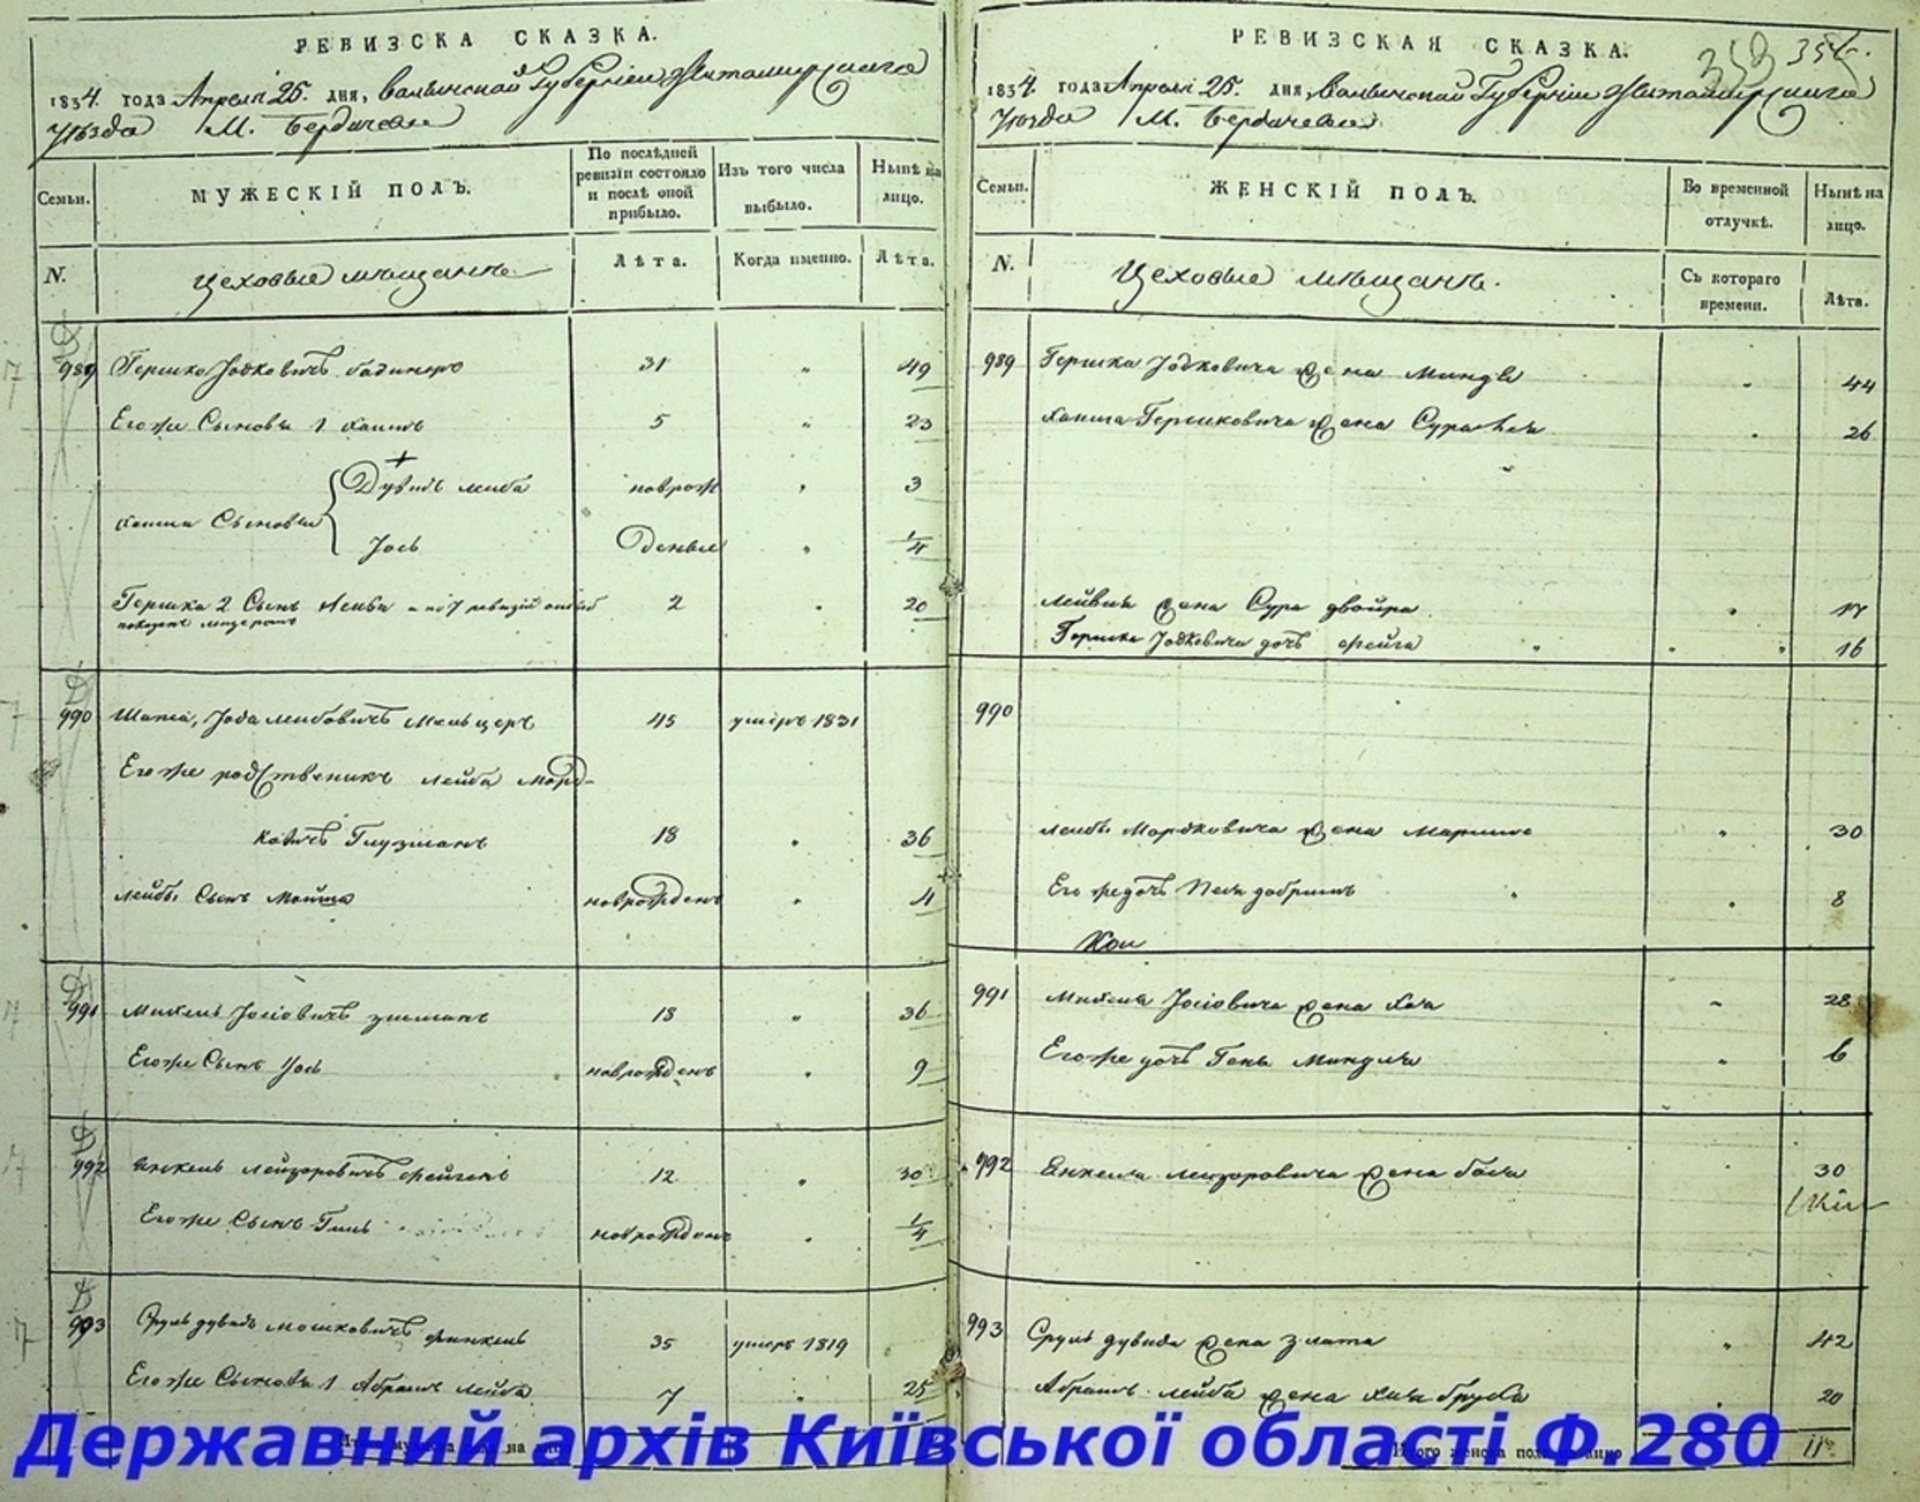 РЕВИЗСКА СКАЗКА.
1834. года Апреля 25. дня, Волынской Губернии Житомирскаго
Уѣзда М. Бердичева
Семьи.
МУЖЕСКІЙ ПОЛЪ.
По послѣдней ревизіи состояло и послѣ оной прибыло.
Изъ того числа выбыло.
Нынѣ на лицо.
N.
Цеховые мещане
Лѣта.
Когда именно.
Лѣта.
989 Гершко Іовковичъ 31 49
Егоже Сыновья 1 Хаимъ 5 23
Дувидъ лейба новрож 3
Хаима Сыновья
Іось денные 1/4
Гершка 2 Сынъ Лейбы 2 20
990 Іода Лейбовичъ Мельцеръ 45 умеръ 1831
Егоже родственикъ лейба Морд-
ковичъ Глузманъ 18 36
Лейбы Сынъ новрожденъ 4
991 Михель Іосіовичъ 18 36
Егоже Сынъ Іось новрожденъ 9
992 Янкель Лейзоровичъ Фейгенъ 12 30
Егоже Сынъ новрожденъ 1/4
993 Сруль дувидъ мошковичъ Финкель 35 умеръ 1819
Егоже Сыновья 1 Абрамъ лейба 7 25
РЕВИЗСКАЯ СКАЗКА.
354.
1834. года Апреля 25. дня, Волынской Губерніи Житомирскаго
Уѣзда М. Бердичева
Семьи.
ЖЕНСКІЙ ПОЛЪ.
Во временной отлучкѣ.
Нынѣ на лицо.
N.
Цеховые мещане.
Съ котораго времени.
Лѣта.
989 Гершка Іовковича жена Миндля 44
Хаима Гершковича жена Сура 26
Лейбы жена Сура двойра 17
Гершка Іовковича дочь Фейга 16
990
Лейбы Мордковича жена 30
Его же дочь Песя 8
991 Михеля Іосіовича жена Хая 28
Егоже дочь Миндля 6
992 Янкеля Лейзоровича жена бася 30
993 Сруль дувида жена злата 42
Абрамъ лейба жена Хая 20
Итого женска пола на лицо 11
Державний архів Київської області Ф.280